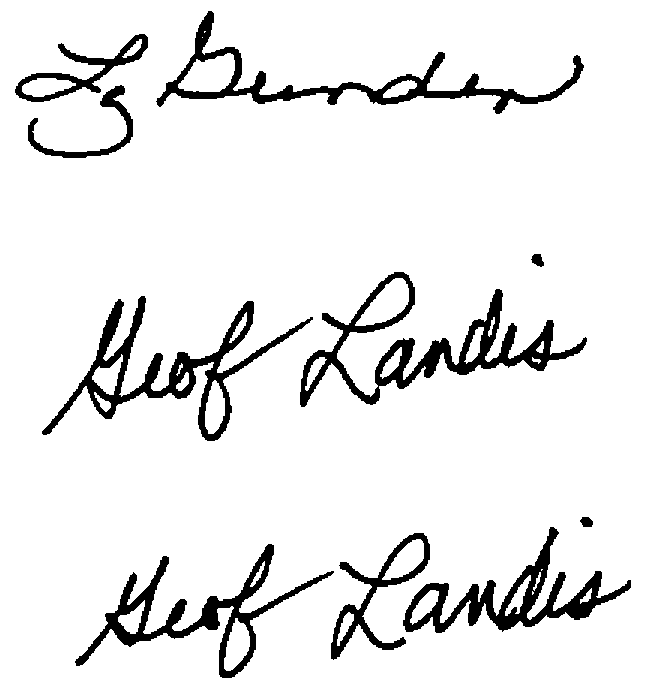 Gunden
Geof Landis
Geof Landis